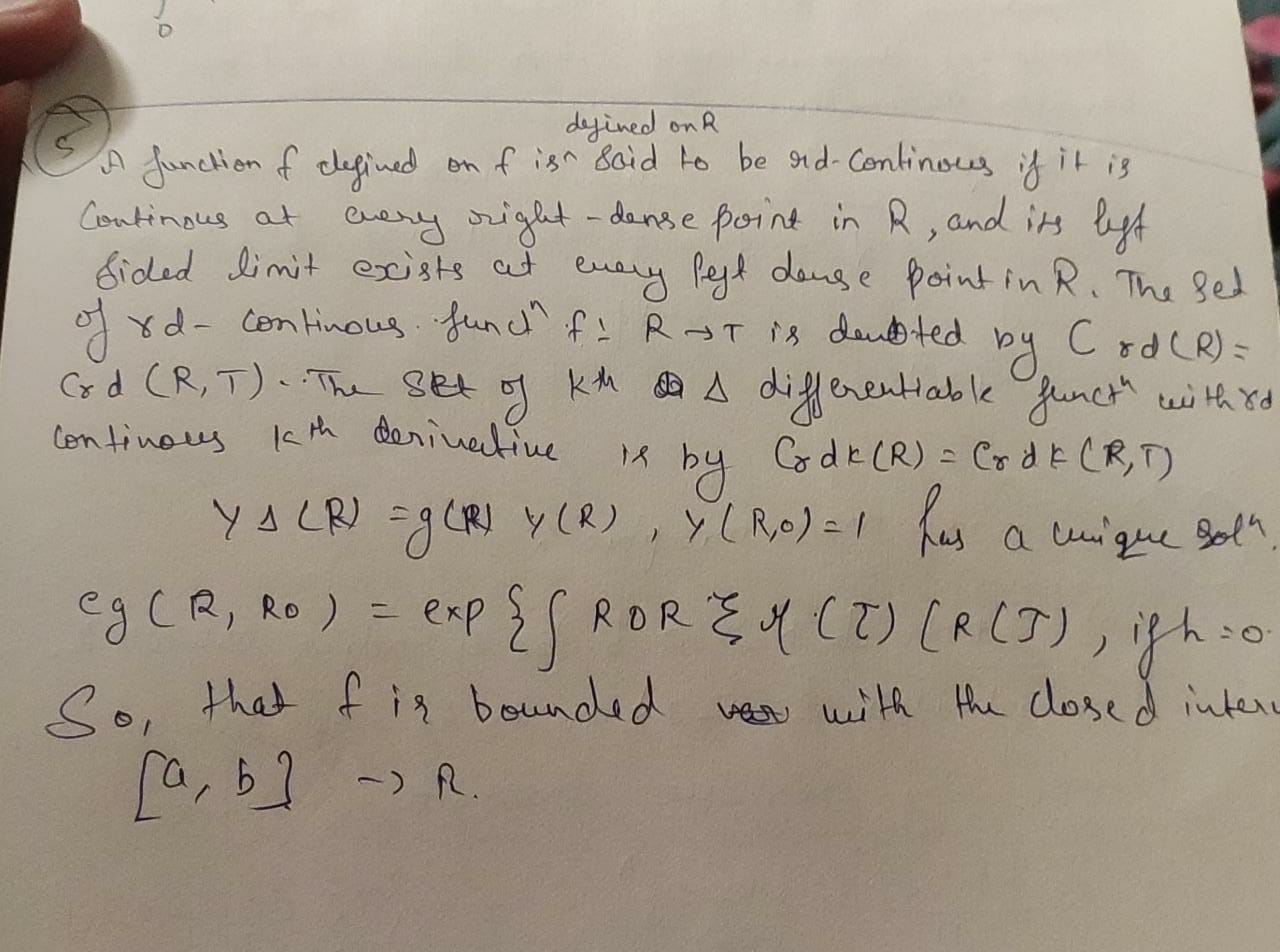 0
5
defined on R
A function f defined on f is^ Said to be rd-Continous if it is
Continous at every right-dense point in R, and its left
sided limit exists at every left dense point in R. The Set
of rd-continous funcⁿ f: R → T is denoted by C rd(R) =
Crd (R, T). The Set of kth Δ differentiable functⁿ with rd
continous kth derivative is by CrdK(R) = CrdK(R,T)
YΔ(R) = g(R) Y(R), Y(R,0)=1 has a unique solⁿ.
eg(R, R0) = exp {∫ R0R ξ (τ) (R(J), if h=0.
So, that f is bounded with the closed inter
[a, b] -> R.